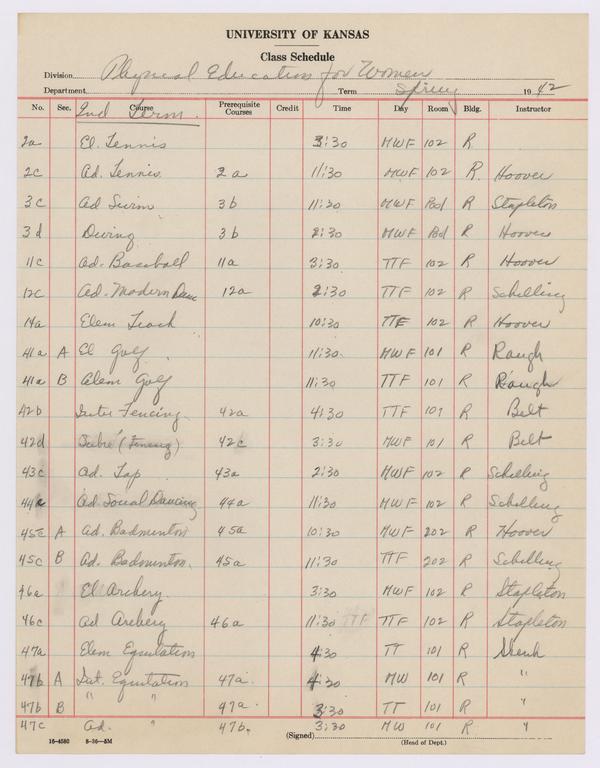 UNIVERSITY OF KANSAS
Class Schedule
Division Physical Education for Women
Department Term Spring 1942
No. Sec. Course Prerequisite Courses Credit Time Day Room Bldg. Instructor
2nd Term.
2a El. Tennis 3:30 MWF 102 R
2c Ad. Tennis 2a 11:30 MWF 102 R. Hoover
3c Ad Swim 3b 11:30 MWF Pool R Stapleton
3d Diving 3b 2:30 MWF Pool R Hoover
11c Ad. Baseball 11a 3:30 TTF 102 R Hoover
12c Ad. Modern Danc 12a 2:30 TTF 102 R Schilling
14a Elem Track 10:30 TTF 102 R Hoover
41a A El Golf. 11:30 MWF 101 R Raugh
41a B Elem Golf 11:30 TTF 101 R Raugh
42b Inter Fencing 42a 4:30 TTF 101 R Belt
42d Sabre (Fencing) 42c 3:30 MWF 101 R Belt
43c Ad. Tap 43a 2:30 MWF 102 R Schilling
44c Ad. Social Dancing 44a 11:30 MWF 102 R Schilling
45c A Ad. Badminton 45a 10:30 MWF 202 R Hoover
45c B Ad. Badminton. 45a 11:30 TTF 202 R Schilling
46a El Archery. 3:30 MWF 102 R Stapleton
46c Ad Archery 46a 11:30 TTF TTF 102 R Stapleton
47a Elem Equitation 4:30 TT 101 R
47b A Int. Equitation 47a. 4:30 MW 101 R "
47b B " " 47a. 3:30 TT 101 R "
47c Ad. " 47b. 3:30 MW 101 R "
(Signed)
16-4580 8-36-5M (Head of Dept.)